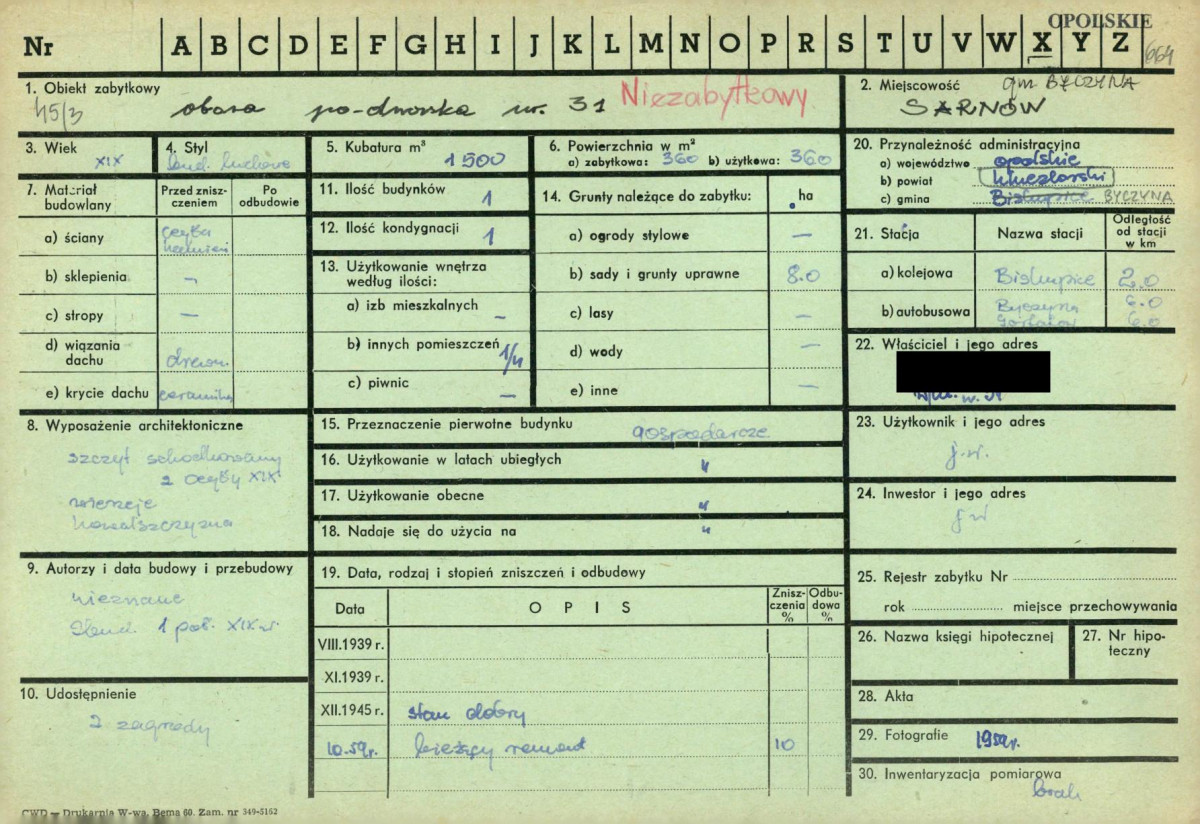 OPOLSKIE
Nr A B C D E F G H I J K L M N O P R S T U V W X Y Z 664
1. Obiekt zabytkowy
45/3 obora po-dworska nr. 31 Niezabytkowy
2. Miejscowość gm BYCZYNA
SARNÓW
3. Wiek
XIX
4. Styl
bud. ludowe
5. Kubatura m³ 1500
6. Powierzchnia w m²
a) zabytkowa: 360 b) użytkowa: 360
20. Przynależność administracyjna
a) województwo opolskie
b) powiat kluczborski
c) gmina Biskupice BYCZYNA
7. Materiał budowlany
Przed zniszczeniem
Po odbudowie
a) ściany cegła kamień
b) sklepienia —
c) stropy —
d) wiązania dachu drewn.
e) krycie dachu ceramika
11. Ilość budynków 1
12. Ilość kondygnacji 1
13. Użytkowanie wnętrza według ilości:
a) izb mieszkalnych —
b) innych pomieszczeń 1/4
c) piwnic —
14. Grunty należące do zabytku: ha
a) ogrody stylowe —
b) sady i grunty uprawne 8.0
c) lasy —
d) wody —
e) inne —
21. Stacja
Nazwa stacji
Odległość od stacji w km
a) kolejowa Biskupice 2.0
b) autobusowa Byczyna 6.0
6.0
22. Właściciel i jego adres
8. Wyposażenie architektoniczne
szczyt schodkowany
z cegły XIX
wierzeje
kowalszczyzna
15. Przeznaczenie pierwotne budynku gospodarcze
16. Użytkowanie w latach ubiegłych "
17. Użytkowanie obecne "
18. Nadaje się do użycia na "
23. Użytkownik i jego adres
j.w.
24. Inwestor i jego adres
j w
9. Autorzy i data budowy i przebudowy
nieznane
Zbud. 1 poł. XIX w.
10. Udostępnienie
z zagrody
19. Data, rodzaj i stopień zniszczeń i odbudowy
Data
OPIS
Zniszczenia %
Odbudowa %
VIII.1939 r.
XI.1939 r.
XII.1945 r. stan dobry
10.59 r. bieżący remont 10
25. Rejestr zabytku Nr
rok miejsce przechowywania
26. Nazwa księgi hipotecznej
27. Nr hipoteczny
28. Akta
29. Fotografie 1959r.
30. Inwentaryzacja pomiarowa
brak
CWD — Drukarnia W-wa, Bema 60. Zam. nr 349-5162